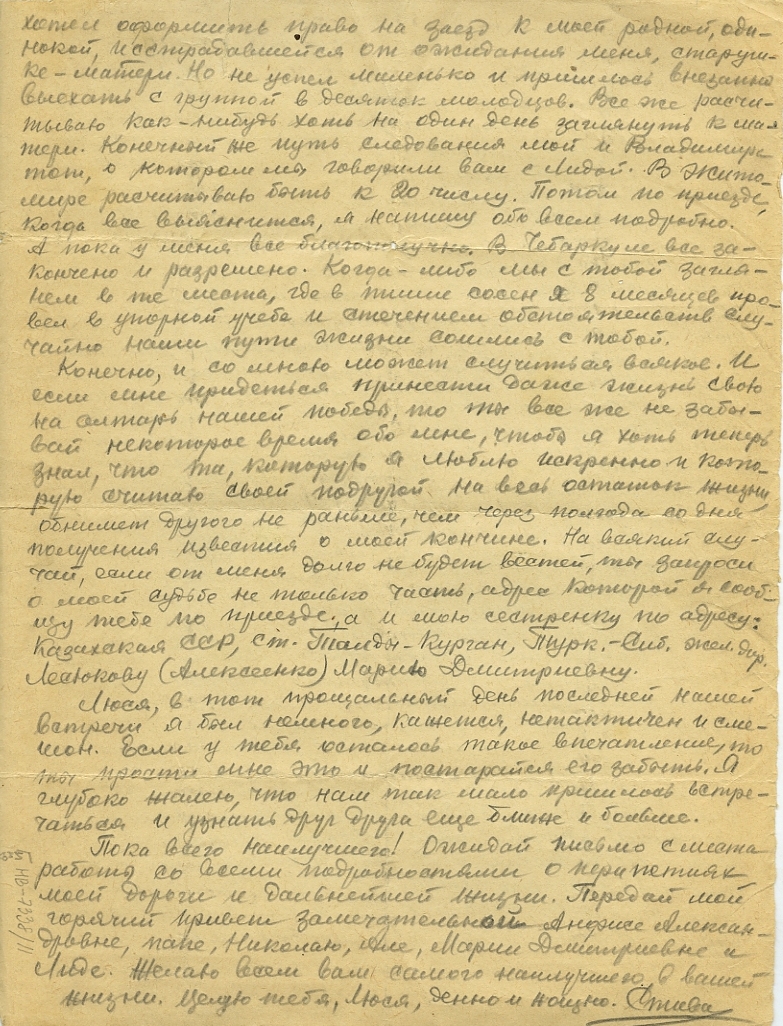 хотел оформить право на заезд к моей родной, оди-
нокой, исстрадавшейся от ожидания меня, старуш-
ке-матери. Но не успел маленько и пришлось внезапно
выехать с группой в десяток молодцов. Все же расчи-
тываю как-нибудь хоть на один день заглянуть к ма-
тери. Конечный же путь следования мой и Владимира
тот, о котором мы говорили вам с Лидой. В Жито-
мире расчитываю быть к 20 числу. Потом по приезде,
когда все выяснится, я напишу обо всем подробно.
А пока у меня все благополучно. В Чебаркуле все за-
кончено и разрешено. Когда-либо мы с тобой загля-
нем в те места, где в тиши сосен я 8 месяцев про-
вел в упорной учебе и стечением обстоятельств слу-
чайно наши пути жизни сошлись с тобой.
Конечно, и со мною может случиться всякое. И
если мне придеться принести даже жизнь свою
на алтарь нашей победы, то ты все же не забы-
вай некоторое время обо мне, чтобы я хоть теперь
знал, что та, которую я люблю искренно и кото-
рую считаю своей подругой на весь остаток жизни,
обнимет другого не раньше, чем через полгода со дня
получения известия о моей кончине. На всякий слу-
чай, если от меня долго не будет вестей, ты запроси
о моей судьбе не только часть, адрес которой я сооб-
щу тебе по приезде, а и мою сестренку по адресу:
Казахская ССР, ст. Талды-Курган, Турк.-Сиб. жел. дор.
Лесюкову (Алексеенко) Марию Дмитриевну.
Люся, в тот прощальный день последней нашей
встречи я был немного, кажется, нетактичен и сме-
шон. Если у тебя осталось такое впечатление, то
ты прости мне это и постарайся его забыть. Я
глубоко жалею, что нам так мало пришлось встре-
чаться и узнать друг друга еще ближе и больше.
Пока всего наилучшего! Ожидай письмо с места
работы со всеми подробностями о перипетиях
моей дороги и дальнейшей жизни. Передай мой
горячий привет замечательной Анфисе Алексан-
дровне, папе, Николаю, Але, Марии Дмитриевне и
Люде. Желаю всем вам самого наилучшего в вашей
жизни. Целую тебя, Люся, денно и нощно. Стива
НВ-7398/11